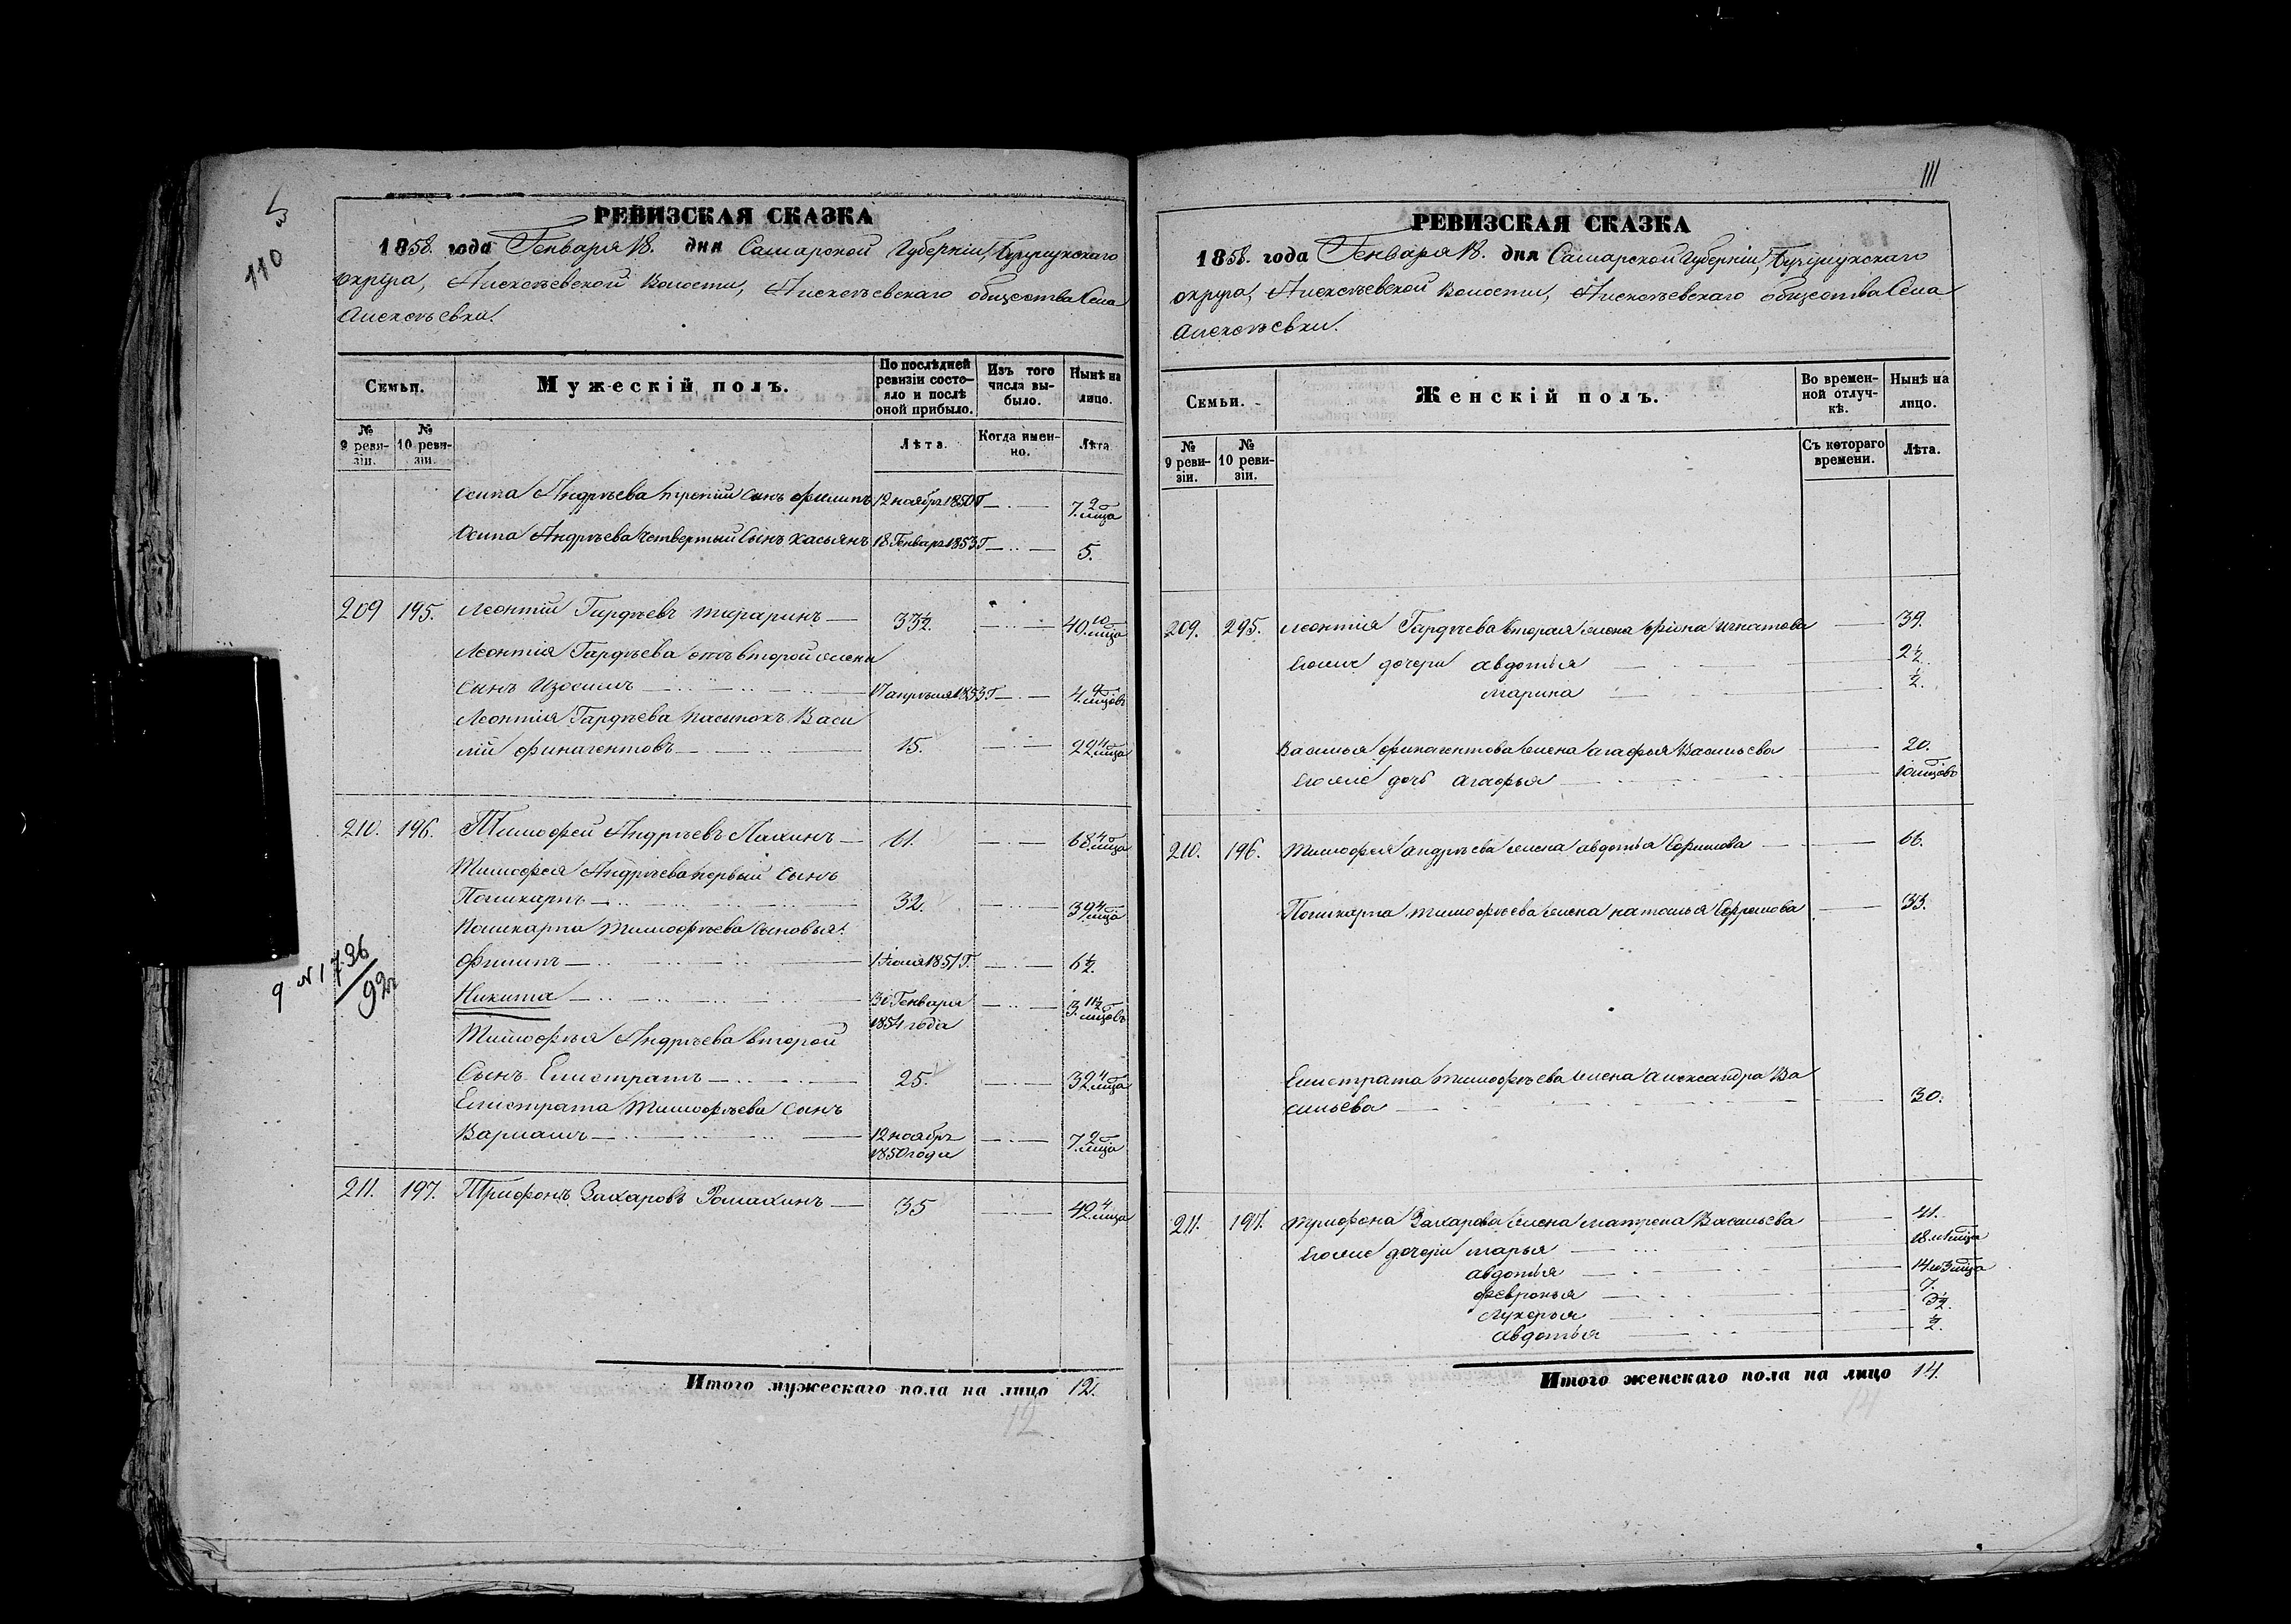 110
РЕВИЗСКАЯ СКАЗКА
1858. года Генваря 18. дня Самарской Губерніи, Бузулукскаго
округа, Алексѣевской Волости, Алексѣевскаго общества Села
Алексѣевки.
Семьи. Мужескій полъ. По послѣдней ревизіи состояло и послѣ оной прибыло. Изъ того числа выбыло. Нынѣ на лицо.
№ 9 ревизіи. № 10 ревизіи. Лѣта. Когда именно. Лѣта
Осипа Андрѣева третій сынъ Филипъ 12 ноябр 1850 Г 7. 2 мца
Осипа Андрѣева четвертый Сынъ Касьянъ 18 Генвар 1853 Г 5.
209 195. Леонтій Гардѣевъ 33½. 40. 10 мца
Леонтия Гардѣева отъ второй жены
Сынъ Изосимъ 17 апрѣля 1853 Г 4. 9 мцовъ
Леонтія Гардѣева пасынокъ Васи
лій Финагентовъ 15. 22 4 мца
210. 196. Тимофей Андрѣевъ Лахинъ 61. 68 4 мца
Тимофея Андрѣева первый Сынъ
Поликарпъ 32. 39 4 мца
Поликарпа Тимофѣева Сыновья:
Филипъ 1 Июля 1851 Г. 6½.
Никита 30 Генваря 1854 года 3. 11½ мцовъ
9 № 1736
92
Тимофѣя Андрѣева второй
Сынъ Елистратъ 25. 32 4 мца
Елистрата Тимофѣева Сынъ
Варламъ 12 ноябр 1850 года 7. 2 мца
211. 197. Трифонъ Захаровъ Ромахинъ 35 42 4 мца
Итого мужескаго пола на лицо 12.
12
111
РЕВИЗСКАЯ СКАЗКА
1858. года Генваря 18. дня Самарской Губерніи, Бузулукскаго
округа, Алексѣевской Волости, Алексѣевскаго общества Села
Алексѣевки.
Семьи. Женскій полъ. Во временной отлучкѣ. Нынѣ на лицо.
№ 9 ревизіи. № 10 ревизіи. Съ котораго времени. Лѣта.
209. 295. Леонтія Гардѣева вторая жена Фіона Игнатова 39.
Егоже дочери Авдотья 2½.
Марина ½.
Василья Финагентова жена Агафья Васильева 20.
Егоже дочь Агафья 10 мцовъ
210. 196. Тимофея Андрѣева жена Авдотья Ефимова 66.
Поликарпа Тимофѣева жена Наталья Ефремова 33.
Елистрата Тимофѣева жена Александра Ва
сильева 30.
211. 197. Трифона Захарова жена Матрена Васильева 41.
Егоже дочери Марья 18 и 1 мца
Авдотья 14 и 3 мца
Февронья 7.
Лукерья 3½.
Авдотья ½.
Итого женскаго пола на лицо 14.